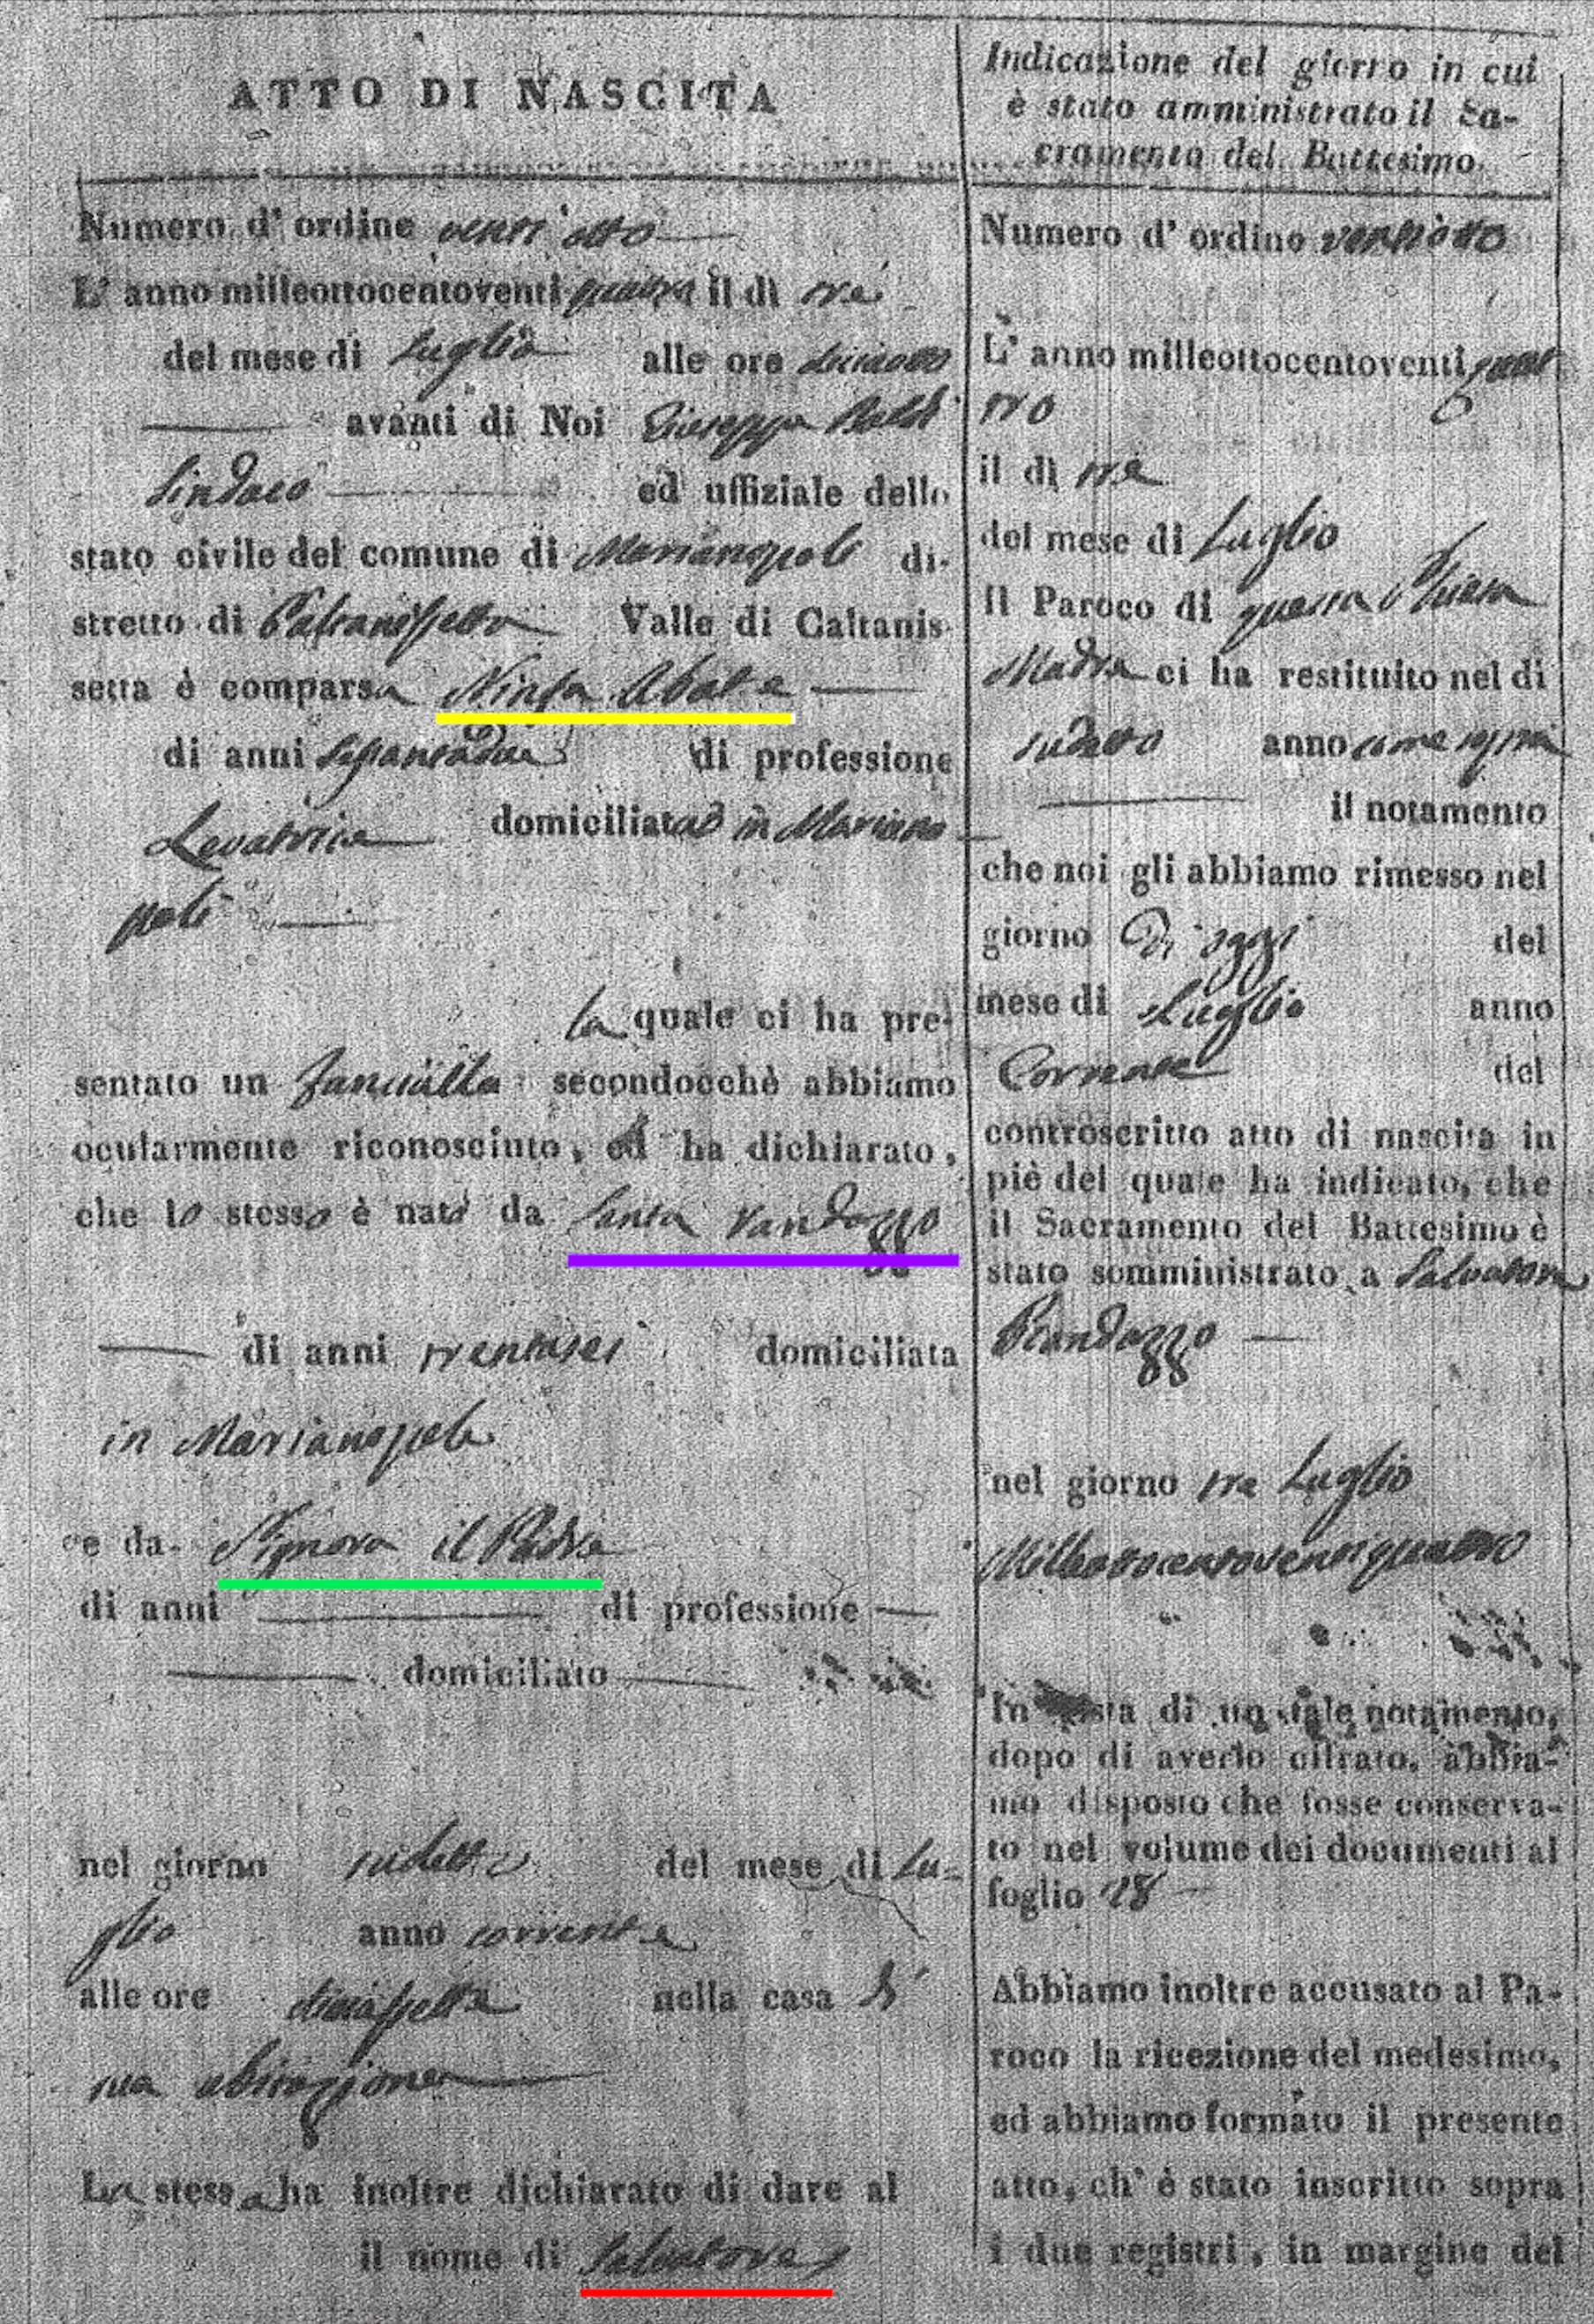 ATTO DI NASCITA
Numero d' ordine vent'otto
L' anno milleottocentoventi quattro il di tre
del mese di Luglio alle ore diciaotto
avanti di Noi Giuseppe Baldi
Sindaco ed uffiziale dello
stato civile del comune di Marianopoli di-
stretto di Caltanissetta Valle di Caltanis-
setta è comparsa Ninfa Abate
di anni di professione
Levatrice domiciliata in Mariano
poli
la quale ci ha pre-
sentato un fanciullo secondocchè abbiamo
ocularmente riconosciuto, ed ha dichiarato,
che lo stesso è nato da Santa Randazzo
di anni trentasei domiciliata
in Marianopoli
e da S'ignora il Padre
di anni di professione
domiciliato
nel giorno sudetto del mese di Lu-
glio anno corrente
alle ore diciasette nella casa di
sua abitazione
La stessa ha inoltre dichiarato di dare al
il nome di Salvatore
Indicazione del giorno in cui
è stato amministrato il Sa-
cramento del Battesimo.
Numero d' ordine ventiotto
L' anno milleottocentoventi quat
tro
il di tre
del mese di Luglio
Il Paroco di questa Chiesa
Madre ci ha restituito nel di
sudetto anno come sopra
il notamento
che noi gli abbiamo rimesso nel
giorno di oggi del
mese di Luglio anno
Corrente del
controscritto atto di nascita in
piè del quale ha indicato, che
il Sacramento del Battesimo è
stato somministrato a Salvatore
Randazzo
nel giorno tre Luglio
Milleottocentoventiquattro
In vista di un tale notamento,
dopo di averlo cifrato, abbia-
mo disposto che fosse conserva-
to nel volume dei documenti al
foglio 28
Abbiamo inoltre accusato al Pa-
roco la ricezione del medesimo,
ed abbiamo formato il presente
atto, ch' è stato inscritto sopra
i due registri, in margine del